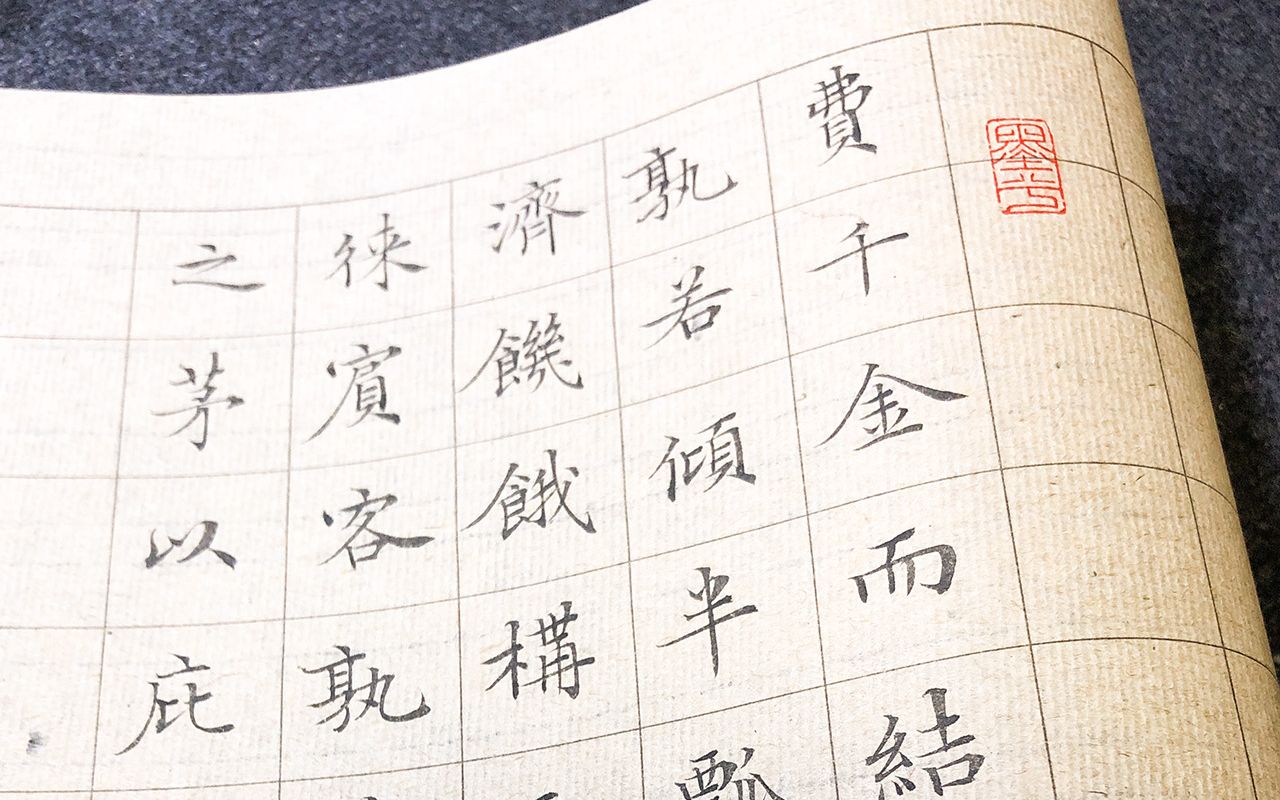 費千金而結
孰若傾半瓢
濟饑餓構
徠賓客孰
之茅以庇